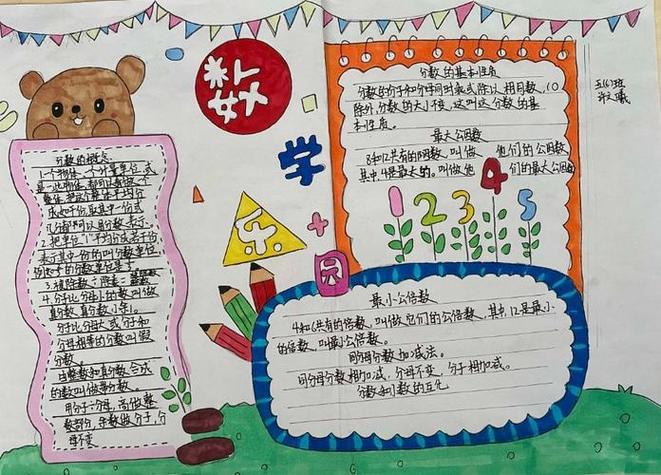 数
学
乐
园
五(6)班
许文曦
分数的概念
1.一个物体、一个计量单位,或
是一些物体,都可以看作一个
整体,把这个整体平均分
成若干份,取其中一份或
几份都可以用分数表示。
2.把单位"1"平均分成若干份
表示其中一份的叫分数单位
3.被除数÷除数=
4.分子比分母小的数叫做
真分数,真分数小于1。
分子比分母大或分子和
分母相等的分数叫假
分数。
由整数和真分数合成
的数叫做带分数。
用分子÷分母,商做整
数部分,余数做分子,分
母不变
分数的基本性质
分数的分子和分母同时乘或除以相同数,(0
除外,分数的大小不变,这叫这分数的基
本性质。
最大公因数
8和12共有的因数,叫做 他们的公因数
其中,4是最大的,叫做他 们的最大公因
1 2 3 4 5
最小公倍数
4和6共有的倍数,叫做它们的公倍数,其中,12是最小
的倍数,叫最小公倍数。
同分母分数加减法。
同分母分数相加减,分母不变,分子相加减。
分数和小数的互化